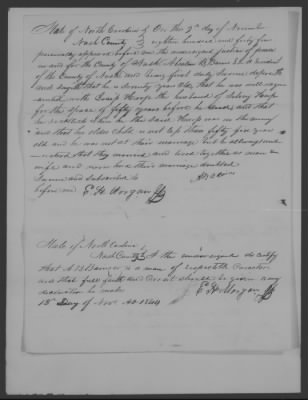 State of North Carolina } On the 9th day of Novemr
Nash County } eighteen hundred and forty four
personally appeared before me the undersigned justice of peace
in and for the County of Nash B. Baines a resident
of the County of Nash and being first duly Sworn deposeth
and sayeth that he is seventy years old, that he was well acqua-
inted with the husband of
for the space of fifty years before he died, and that
he recollects when he the said was in the army
and that his oldest child is not less than fifty five years
old and he was not at their marriage but he always und-
erstood that they married and lived together as man &
wife and never knew their marriage doubted
Sworn and subscribed to
before me E. H. Morgan JP
State of North Carolina }
Nash County } I the undersigned do certify
that B Baines is a man of respectable Caracter
and that full faith and Credit should be given any
declaration he makes
13 Day of Novr AD 1844
E H Morgan JP